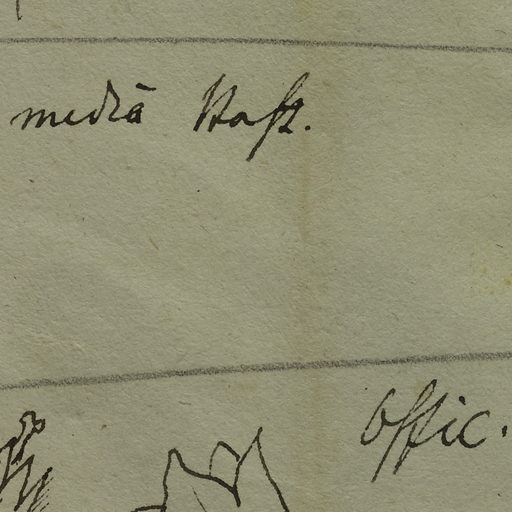 mediā Hast.
Offic.